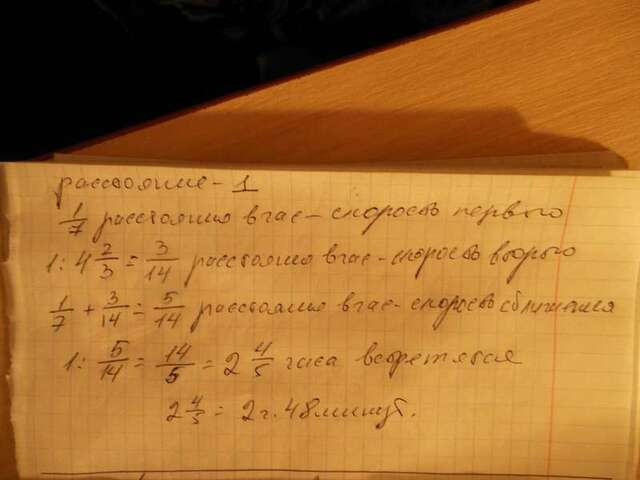 расстояние - 1
1/7 расстояния в час - скорость первого
1 : 4 2/3 = 3/14 расстояния в час - скорость второго
1/7 + 3/14 = 5/14 расстояния в час - скорость сближения
1 : 5/14 = 14/5 = 2 4/5 часа встретятся
2 4/5 = 2 ч. 48 минут.